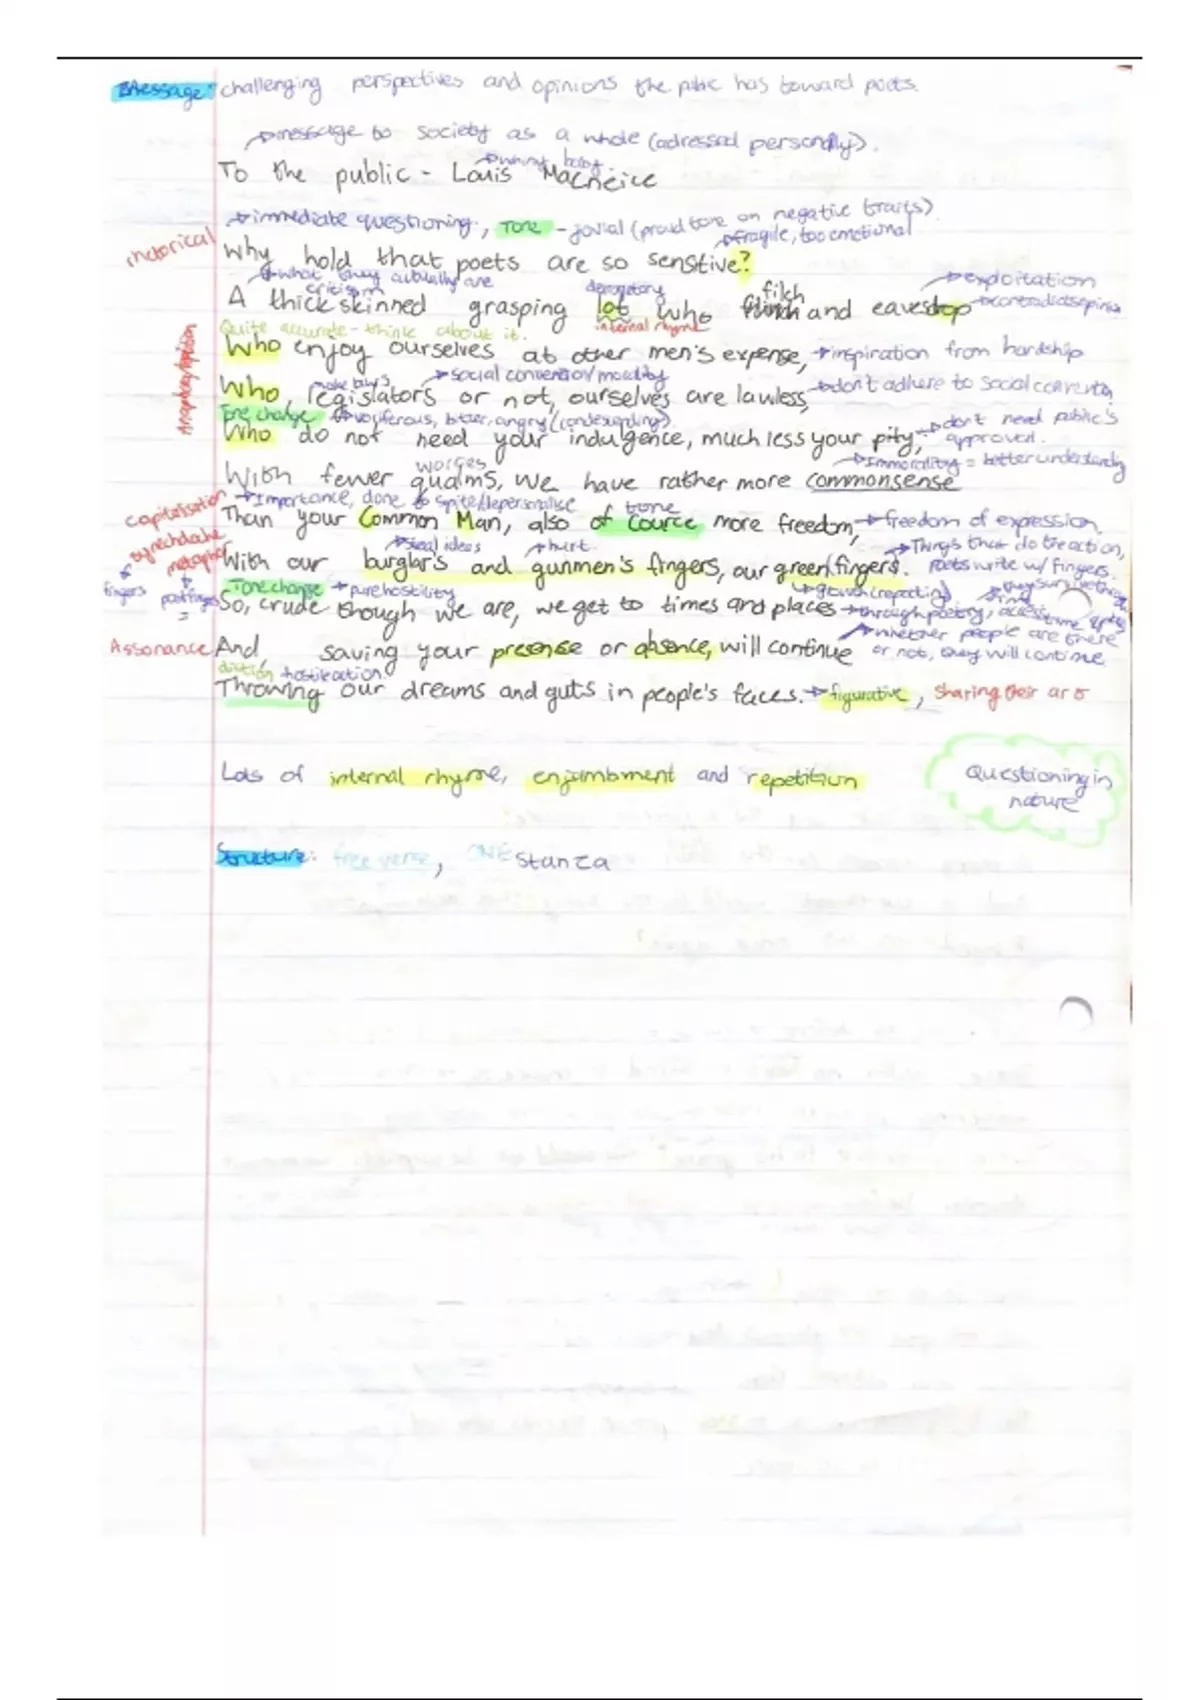 Message: challenging perspectives and opinions the public has toward poets.
message to society as a whole (adressed personally).
To the public - Louis Macneice
immediate questioning, Tone - jovial (proud tone on negative traits)
fragile, too emotional
rhetorical
Why hold that poets are so sensitive?
what they actually are
criticism
derogatory
filch
exploitation
A thick skinned grasping lot who and eavesdrop
internal rhyme
Quite accurate - think about it.
Who enjoy ourselves at other men's expense, inspiration from hardship
make laws social convention/morality
Who, legislators or not, ourselves are lawless, don't adhere to social
Tone change vociferous, bitter, angry (condescending).
don't need public's
approval.
Who do not need your indulgence, much less your pity;
worries
Immorality = better understanding
With fewer qualms, we have rather more commonsense
capitalisation
Importance, done to spite/depersonalise
Than your Common Man, also of cource more freedom, freedom of expression.
synechdoche
steal ideas hurt
Things that do the action,
poets write w/ fingers.
With our burglar's and gunmen's fingers, our green fingers.
fingers
Tone change pure hostility
So, crude though we are, we get to times and places through poetry,
whether people are there
or not, they will continue
Assonance And saving your presense or absence, will continue
diction hostile action
Throwing our dreams and guts in people's faces. figurative, sharing their art
Lots of internal rhyme, enjambment and repetition
Questioning in
nature
Structure: free verse, ONE stanza